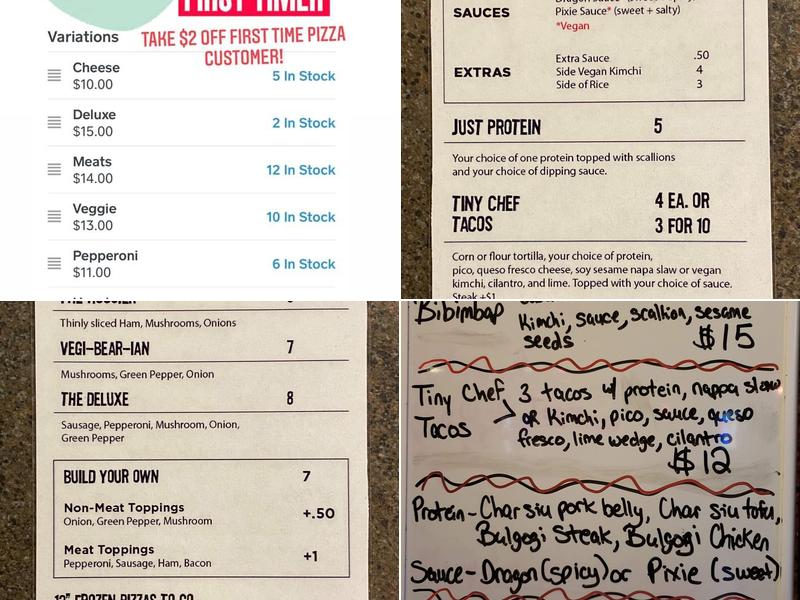 FIRST TIMER
TAKE $2 OFF FIRST TIME PIZZA
CUSTOMER!
Variations
Cheese
$10.00
5 In Stock
Deluxe
$15.00
2 In Stock
Meats
$14.00
12 In Stock
Veggie
$13.00
10 In Stock
Pepperoni
$11.00
6 In Stock
SAUCES
Pixie Sauce* (sweet + salty)
*Vegan
EXTRAS
Extra Sauce .50
Side Vegan Kimchi 4
Side of Rice 3
JUST PROTEIN 5
Your choice of one protein topped with scallions
and your choice of dipping sauce.
TINY CHEF 4 EA. OR
TACOS 3 FOR 10
Corn or flour tortilla, your choice of protein,
pico, queso fresco cheese, soy sesame napa slaw or vegan
kimchi, cilantro, and lime. Topped with your choice of sauce.
Steak +$1
Thinly sliced Ham, Mushrooms, Onions
VEGI-BEAR-IAN 7
Mushrooms, Green Pepper, Onion
THE DELUXE 8
Sausage, Pepperoni, Mushroom, Onion,
Green Pepper
BUILD YOUR OWN 7
Non-Meat Toppings +.50
Onion, Green Pepper, Mushroom
Meat Toppings +1
Pepperoni, Sausage, Ham, Bacon
12" FROZEN PIZZAS TO GO
Bibimbap
Kimchi, sauce, scallion, sesame
seeds $15
Tiny Chef 3 tacos w/ protein, nappa slaw
Tacos > or Kimchi, pico, sauce, queso
fresco, lime wedge, cilantro
$12
Protein - Char siu pork belly, Char siu tofu,
Bulgogi Steak, Bulgogi Chicken
Sauce - Dragon (spicy) or Pixie (sweet)